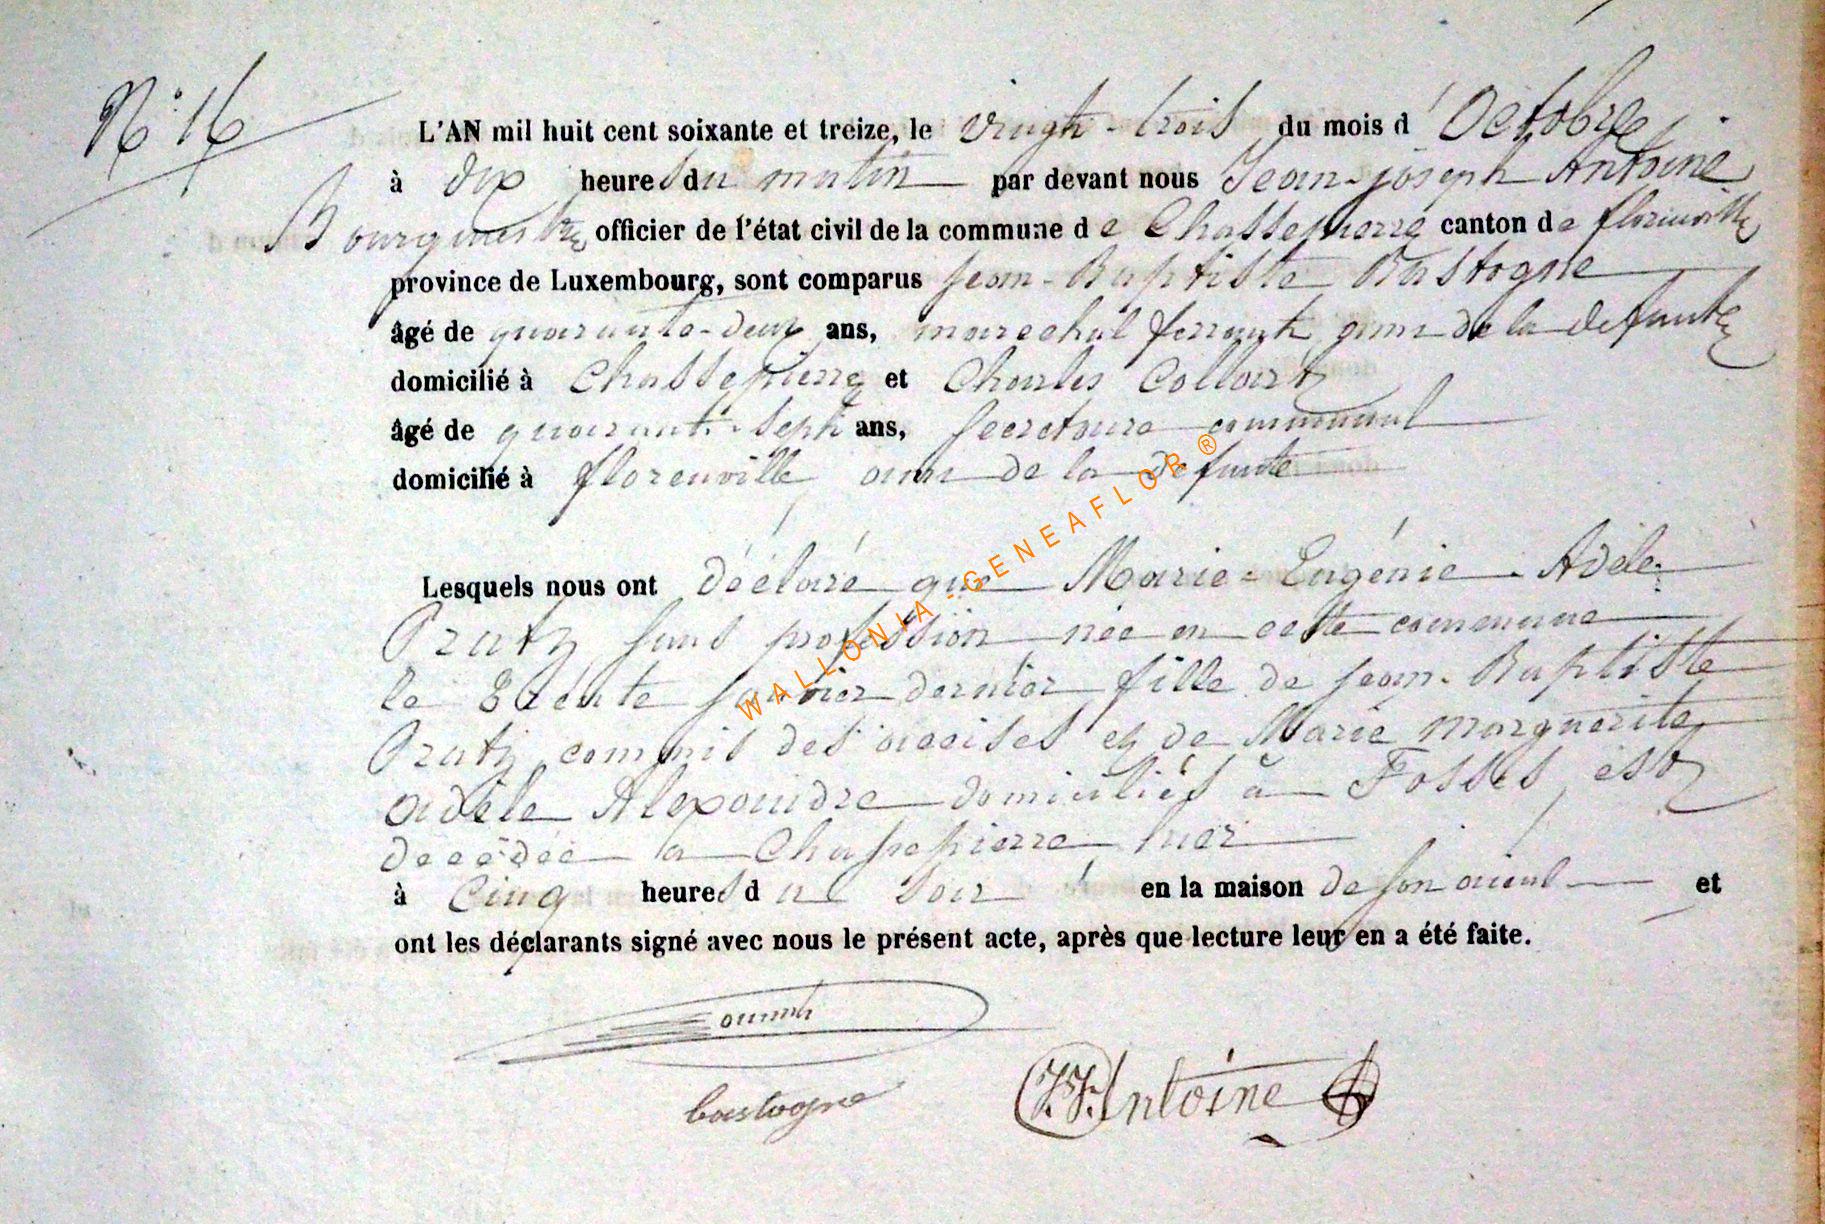 N° 16
L'AN mil huit cent soixante et treize, le vingt-trois du mois d'Octobre
à dix heures du matin par devant nous Jean-joseph Antoine
Bourgmestre officier de l'état civil de la commune de Chassepierre canton de florenville
province de Luxembourg, sont comparus jean-Baptiste Bastogne
âgé de quarante-deux ans, marechal ferrant, ami de la defunte
domicilié à Chassepierre et Charles Collart
âgé de quarante-sept ans, secretaire communal
domicilié à florenville, ami de la defunte
Lesquels nous ont déclaré que Marie-Eugénie-Adèle
Pratz, sans profession née en cette commune
le trente janvier dernier fille de jean-Baptiste
Pratz, commis des accises et de Marie Marguerite
adèle Alexandre domiciliés à Fosses, est
décédée à Chassepierre hier
à Cinq heures du soir en la maison de son aieul et
ont les déclarants signé avec nous le présent acte, après que lecture leur en a été faite.
bastogne
J.J. Antoine
WALLONIA-GENEAFLOR®